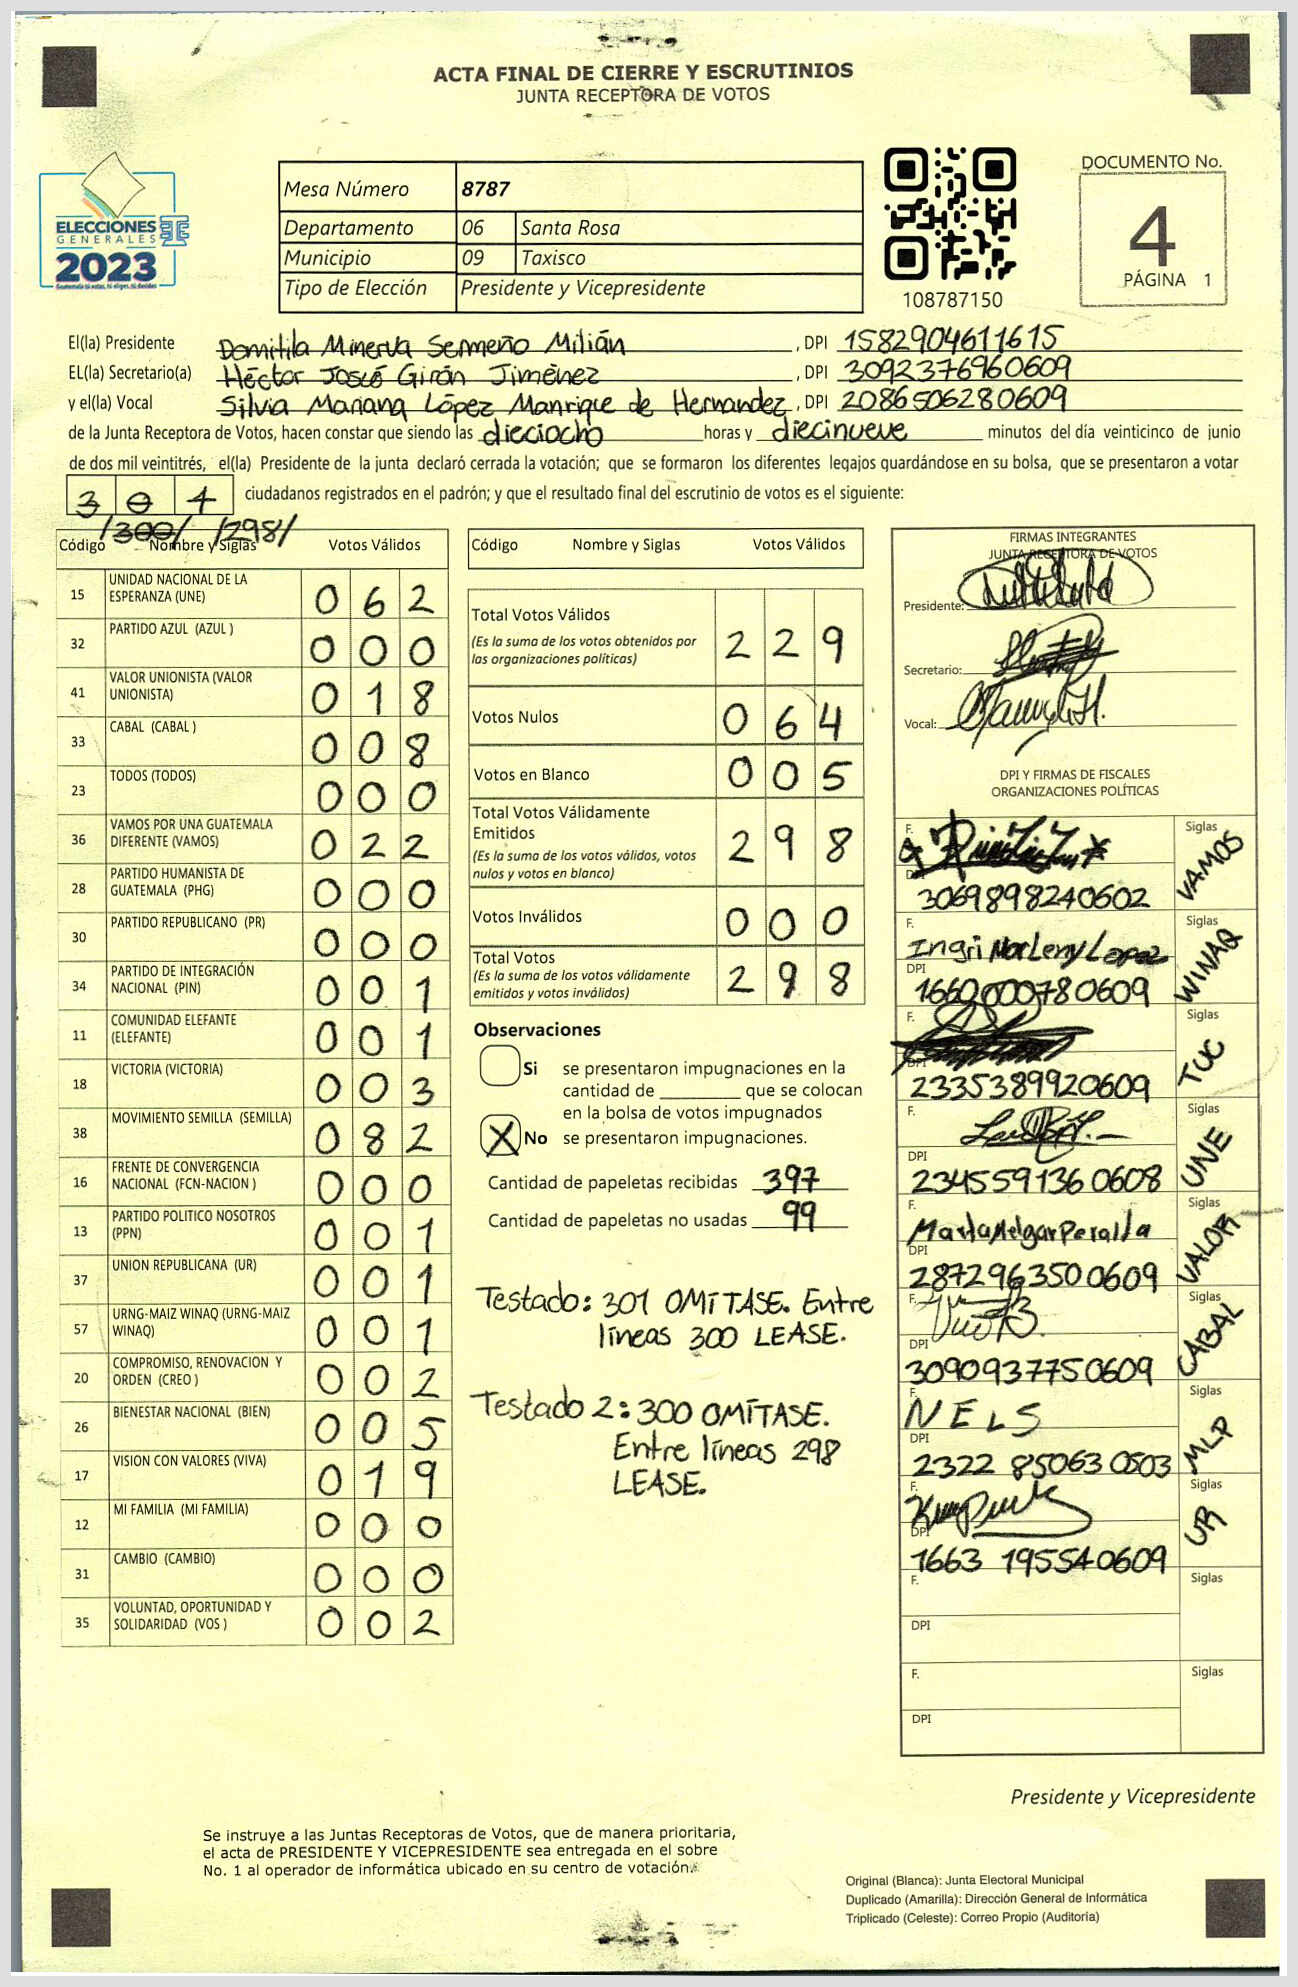 ACTA FINAL DE CIERRE Y ESCRUTINIOS
JUNTA RECEPTORA DE VOTOS
ELECCIONES
GENERALES
2023
Guatemala tú votas, tú eliges, tú decides
Mesa Número 8787
Departamento 06 Santa Rosa
Municipio 09 Taxisco
Tipo de Elección Presidente y Vicepresidente
108787150
DOCUMENTO No.
4
PÁGINA 1
El(la) Presidente Domitila Minerva Sermeño Milián, DPI 1582904611615
EL(la) Secretario(a) Héctor Josué Girón Jiménez, DPI 3092376960609
y el(la) Vocal Silvia Mariana López Manrique de Hernandez, DPI 2086506280609
de la Junta Receptora de Votos, hacen constar que siendo las dieciocho horas y diecinueve minutos del día veinticinco de junio
de dos mil veintitrés, el(la) Presidente de la junta declaró cerrada la votación; que se formaron los diferentes legajos guardándose en su bolsa, que se presentaron a votar
ciudadanos registrados en el padrón; y que el resultado final del escrutinio de votos es el siguiente:
/300/ /298/
Código Nombre y Siglas Votos Válidos
15 UNIDAD NACIONAL DE LA ESPERANZA (UNE) 0 6 2
32 PARTIDO AZUL (AZUL ) 0 0 0
41 VALOR UNIONISTA (VALOR UNIONISTA) 0 1 8
33 CABAL (CABAL ) 0 0 8
23 TODOS (TODOS) 0 0 0
36 VAMOS POR UNA GUATEMALA DIFERENTE (VAMOS) 0 2 2
28 PARTIDO HUMANISTA DE GUATEMALA (PHG) 0 0 0
30 PARTIDO REPUBLICANO (PR) 0 0 0
34 PARTIDO DE INTEGRACIÓN NACIONAL (PIN) 0 0 1
11 COMUNIDAD ELEFANTE (ELEFANTE) 0 0 1
18 VICTORIA (VICTORIA) 0 0 3
38 MOVIMIENTO SEMILLA (SEMILLA) 0 8 2
16 FRENTE DE CONVERGENCIA NACIONAL (FCN-NACION ) 0 0 0
13 PARTIDO POLITICO NOSOTROS (PPN) 0 0 1
37 UNION REPUBLICANA (UR) 0 0 1
57 URNG-MAIZ WINAQ (URNG-MAIZ WINAQ) 0 0 1
20 COMPROMISO, RENOVACION Y ORDEN (CREO ) 0 0 2
26 BIENESTAR NACIONAL (BIEN) 0 0 5
17 VISION CON VALORES (VIVA) 0 1 9
12 MI FAMILIA (MI FAMILIA) 0 0 0
31 CAMBIO (CAMBIO) 0 0 0
35 VOLUNTAD, OPORTUNIDAD Y SOLIDARIDAD (VOS ) 0 0 2
Código Nombre y Siglas Votos Válidos
Total Votos Válidos 2 2 9
(Es la suma de los votos obtenidos por
las organizaciones políticas)
Votos Nulos 0 6 4
Votos en Blanco 0 0 5
Total Votos Válidamente
Emitidos 2 9 8
(Es la suma de los votos válidos, votos
nulos y votos en blanco)
Votos Inválidos 0 0 0
Total Votos 2 9 8
(Es la suma de los votos válidamente
emitidos y votos inválidos)
Observaciones
Si se presentaron impugnaciones en la
cantidad de ________ que se colocan
en la bolsa de votos impugnados
X No se presentaron impugnaciones.
Cantidad de papeletas recibidas 397
Cantidad de papeletas no usadas 99
Testado: 301 OMÍTASE. Entre
líneas 300 LEASE.
Testado 2: 300 OMÍTASE.
Entre líneas 298
LEASE.
FIRMAS INTEGRANTES
JUNTA RECEPTORA DE VOTOS
Presidente:
Secretario:
Vocal:
DPI Y FIRMAS DE FISCALES
ORGANIZACIONES POLÍTICAS
F. Siglas VAMOS
DPI 3069898240602
F. Ingri Marleny Lopez Siglas WINAQ
DPI 1660000780609
F. Siglas TUC
DPI 2335389920609
F. Siglas UNE
DPI 2345591360608
F. Marta Melgar Peralta Siglas VALOR
DPI 2872963500609
F. Siglas CABAL
DPI 3090937750609
F. NELS Siglas MLP
DPI 2322 850630503
F. Siglas UR
DPI 1663 195540609
F. Siglas
DPI
F. Siglas
DPI
Presidente y Vicepresidente
Se instruye a las Juntas Receptoras de Votos, que de manera prioritaria,
el acta de PRESIDENTE Y VICEPRESIDENTE sea entregada en el sobre
No. 1 al operador de informática ubicado en su centro de votación.
Original (Blanca): Junta Electoral Municipal
Duplicado (Amarilla): Dirección General de Informática
Triplicado (Celeste): Correo Propio (Auditoría)